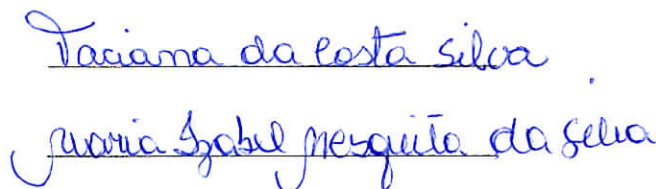 Taciana da Costa Silva
Maria Izabel Mesquita da Silva